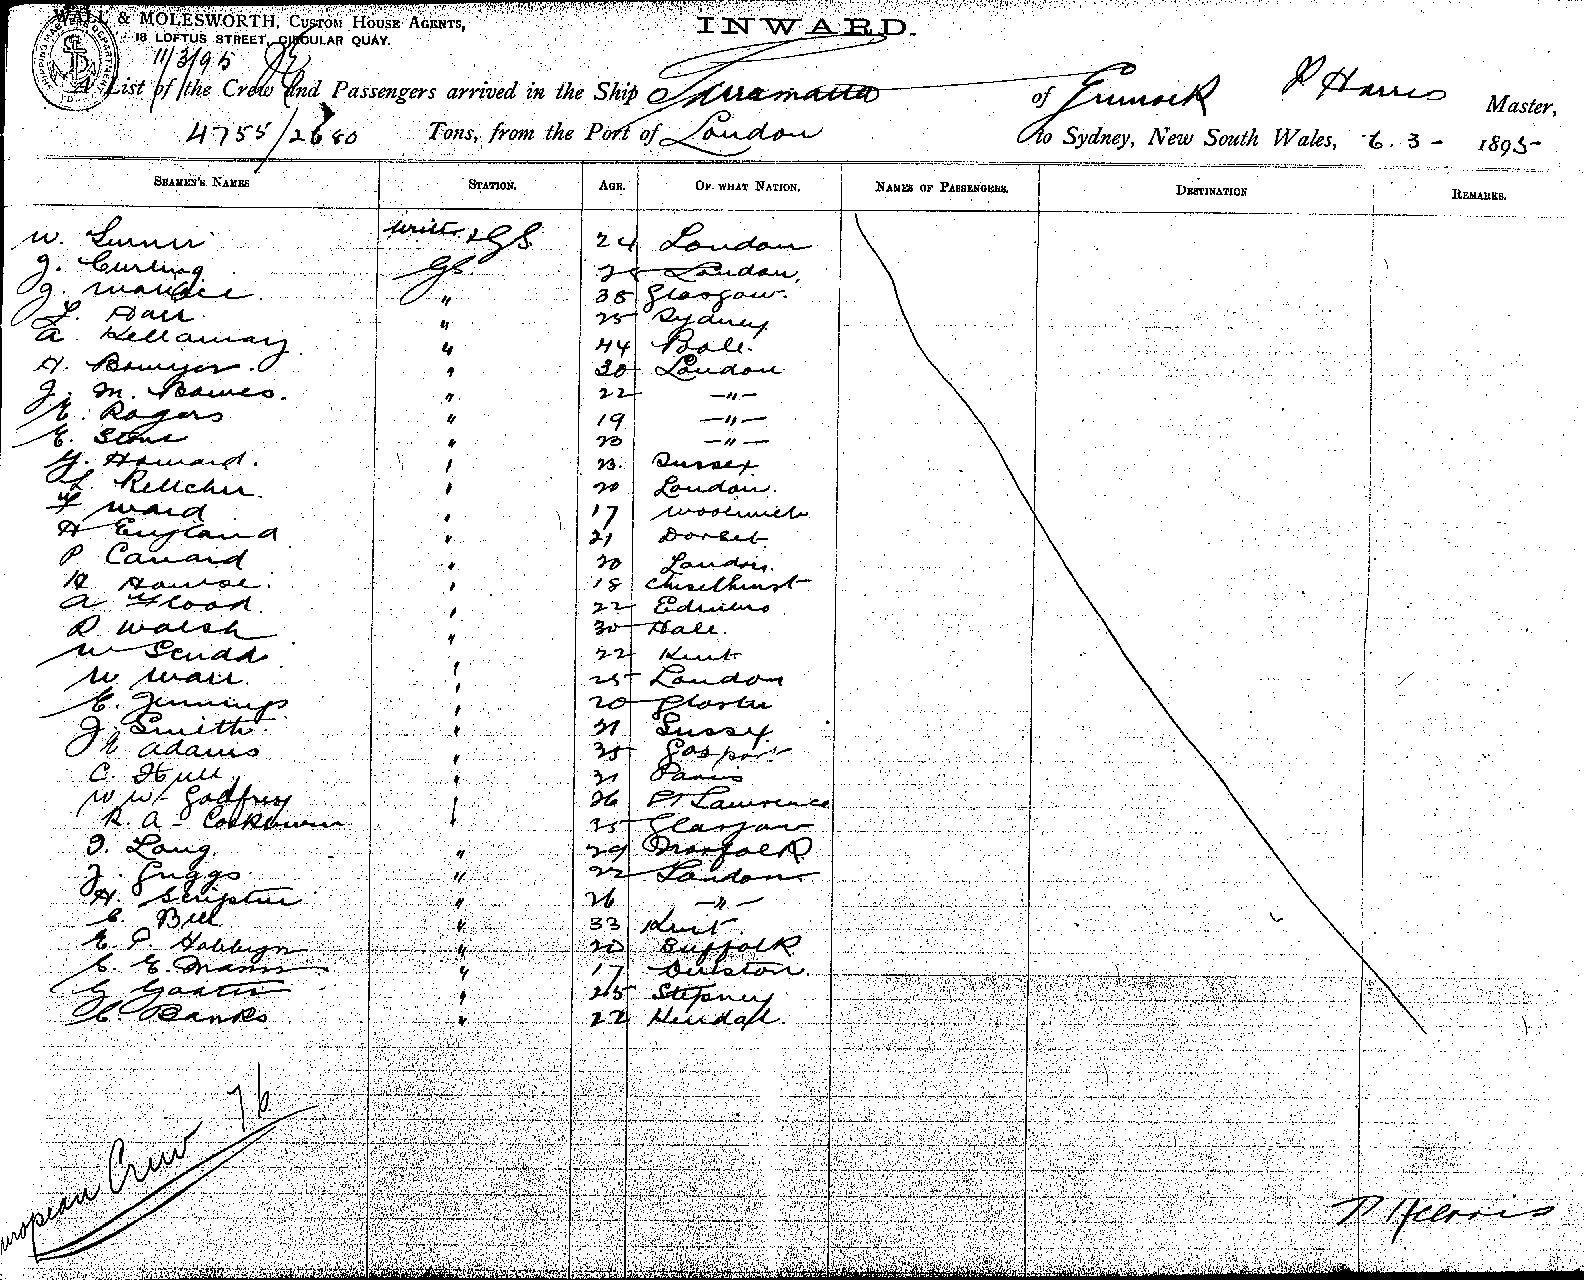 WALL & MOLESWORTH, CUSTOM HOUSE AGENTS,
18 LOFTUS STREET, CIRCULAR QUAY.
INWARD.
11/3/95
A List of the Crew and Passengers arrived in the Ship Parramatta of Greenock P Harris Master,
4755/2680 Tons, from the Port of London to Sydney, New South Wales, 6. 3 - 1895
SEAMEN'S NAMES STATION. AGE. OF WHAT NATION. NAMES OF PASSENGERS. DESTINATION REMARKS.
W. writer & GS 24 London
J. Curling GS London,
J. " 38 Glasgow.
" 25 Sydney
A Kellaway " 44
H. Bowyer. " 30 London
J. M. Bowes. " 22 —"—
E. Rogers " 19 —"—
E. Stone " 20 —"—
Howard. " 23. Sussex
" 20 London.
F Ward " 17 Woolwich
H England " 21 Dorset
P Canard " 20 London.
H House. " 18 Chiselhurst
A Flood. " 22
P Walsh " 30
W Scudd " 22 Kent
W " 25 London
E. Jennings " 20
J. Smith " 21 Sussex
E Adams "
C. Hull " 21 Paris
W W Godfrey " 26 St Lawrence
R. A - " Glasgow
Lang. " 29 Norfolk
J. Griggs " 22 London
H. Scripture " 26 —"—
Bill " 33 Kent
E. P " 20 Suffolk
E. E. Mann " 17
" 25 Stepney
C. Banks " 22 Kendal.
European Crew 76
P Harris